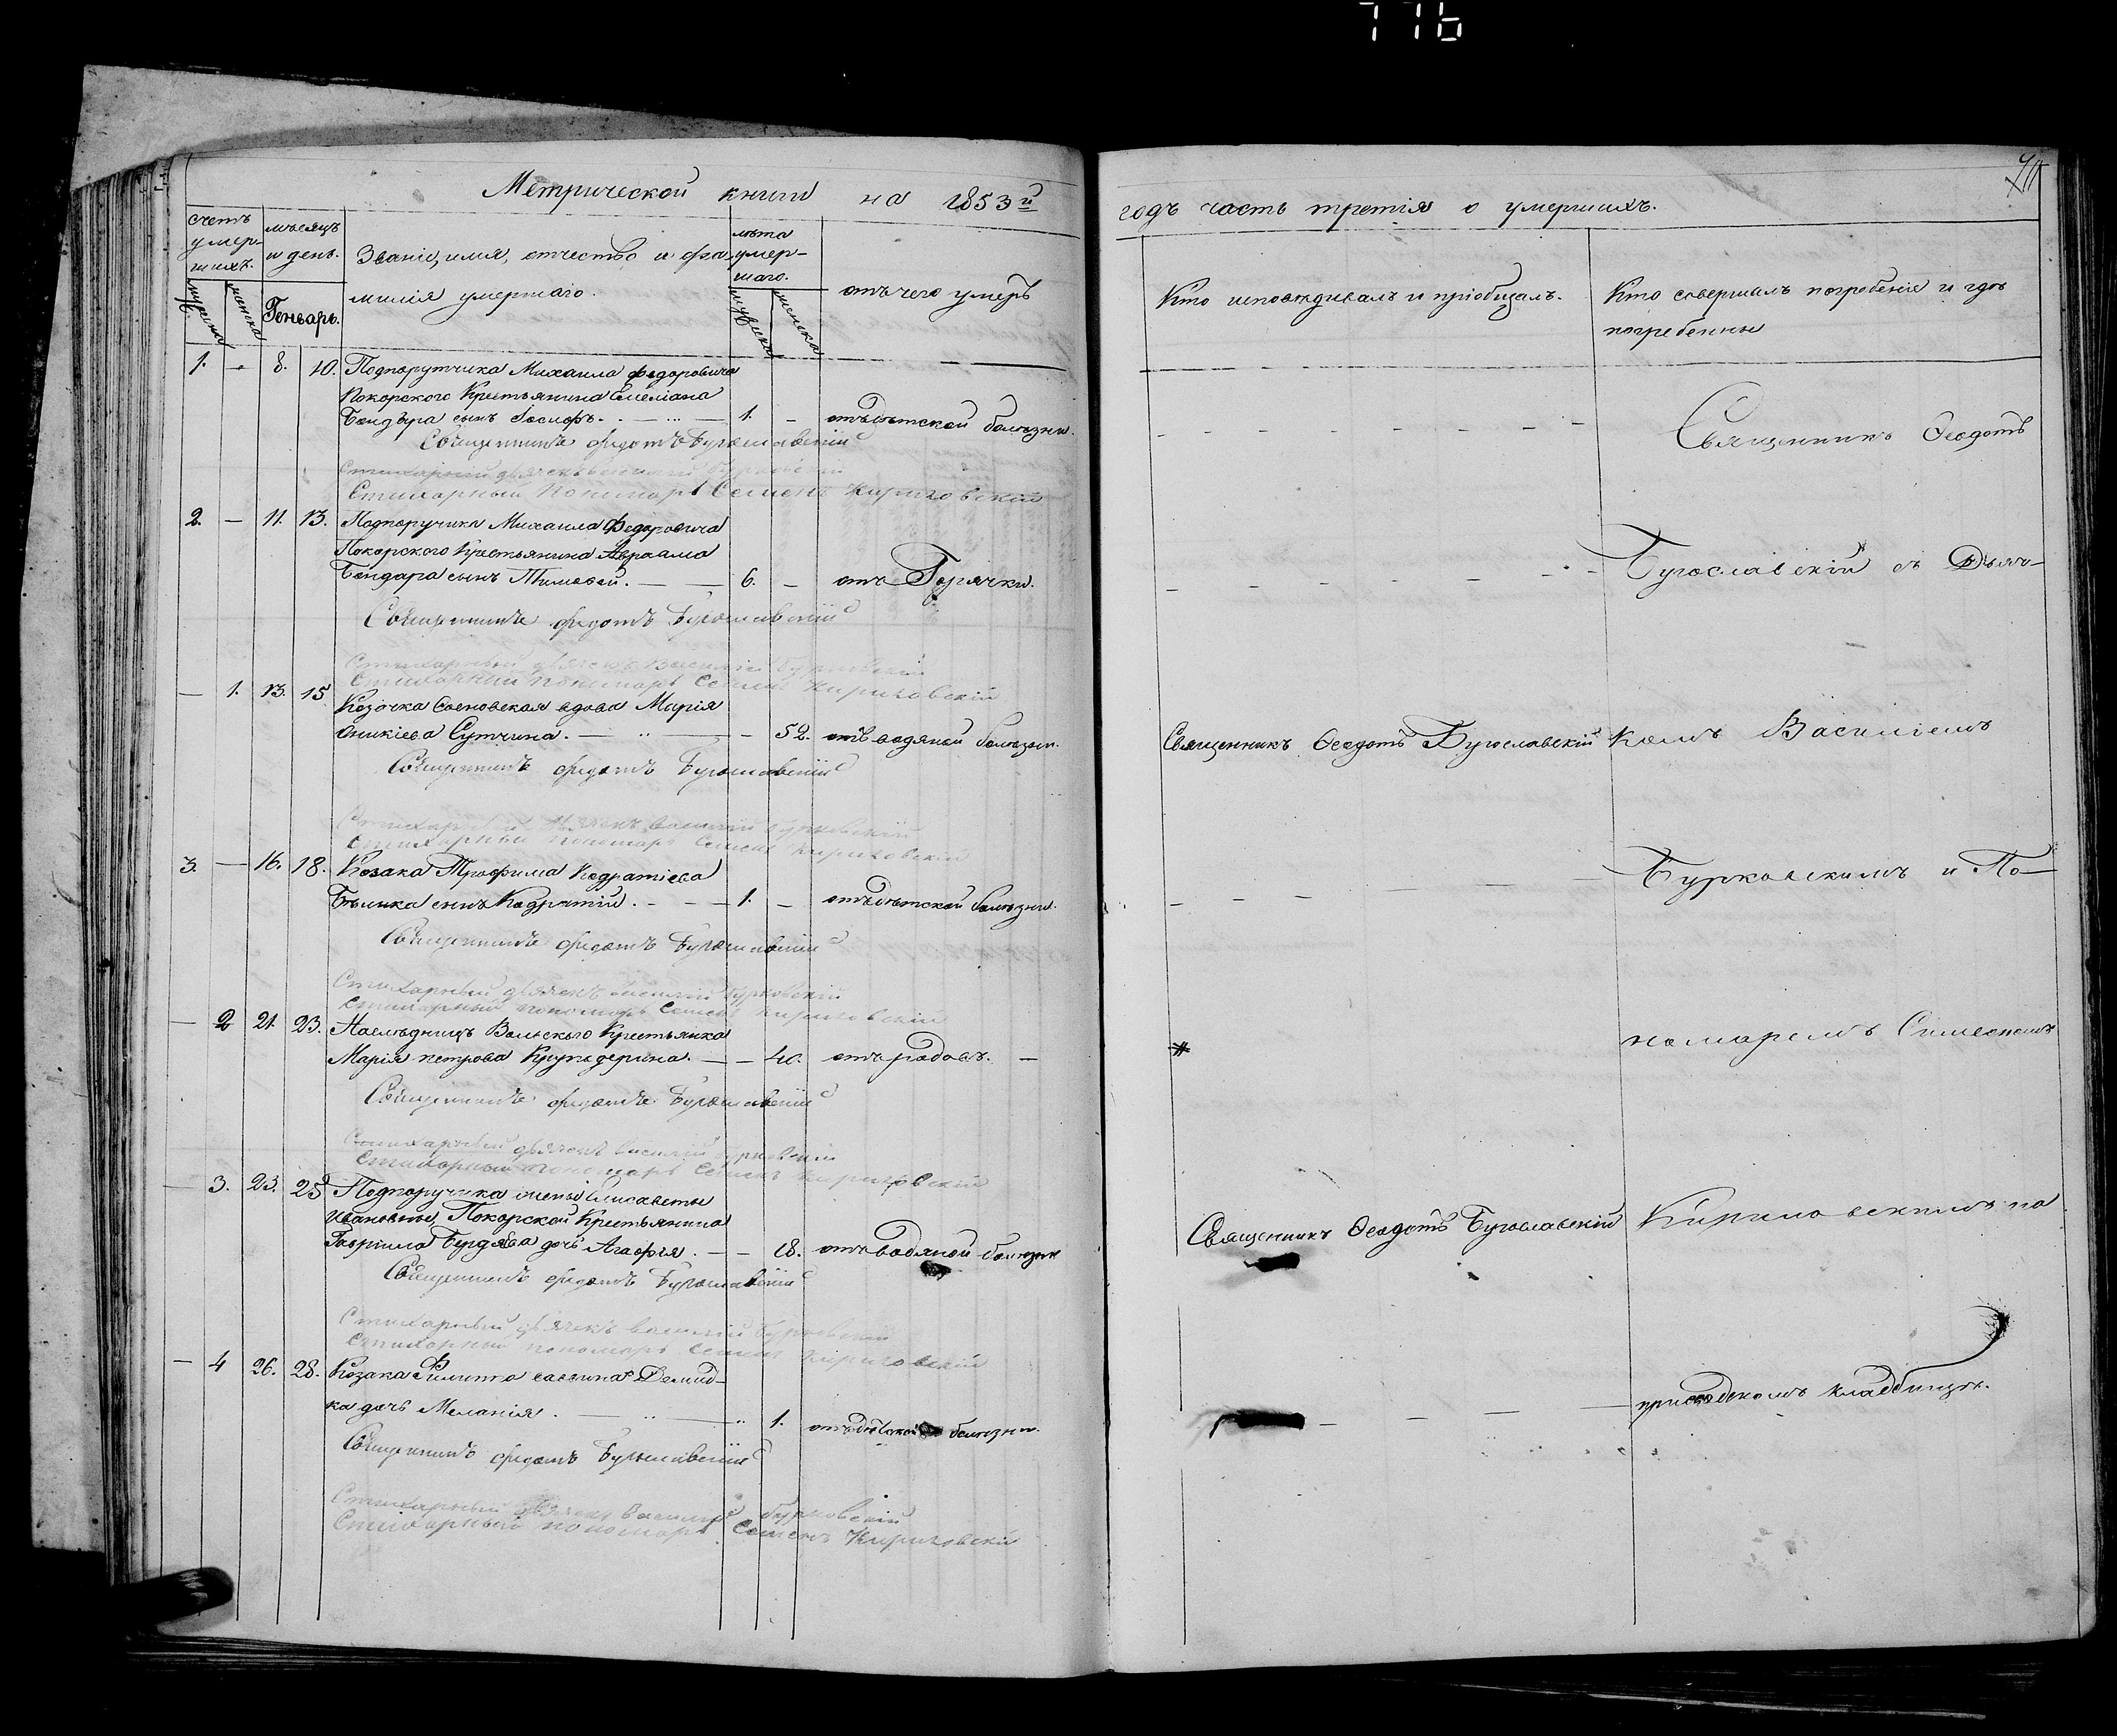 776
Метрической книги на 1853й
годъ часть третія о умершихъ.
счетъ умер-шихъ.
мѣсяцъ и день.
Званіе, имя, отчество и фа-
милія умершаго.
лѣта умер-шаго.
отъ чего умеръ
Кто исповѣдывалъ и пріобщалъ.
Кто совершалъ погребеніе и гдѣ
погребенны
мужеска женска
Геньварь.
мужеска женска
1. - 8. 10. Подпорутчика Михаила Федоровича
Покорского Крестьянина Емеліана
Бондара сынъ Іосифъ. 1. - отъ дѣтской болѣзни.
Священникъ Федотъ Бугославскій
Стихарный дьячекъ Василій Бурковскій
Стихарный пономарь Семенъ Кириловскій
Священникъ Ѳеодотъ
2. - 11. 13. Подпоручика Михаила Федоровича
Покорского Крестьянина Авраама
Бондара сынъ Тимофей. 6. - отъ Горячки.
Священникъ Федотъ Бугославскій
Стихарный дьячекъ Василій Бурковскій
Стихарный пономарь Семенъ Кириловскій
Бугославскій съ Дьяч-
- 1. 13. 15. Козачка вдова Марія
Оникіева Сутчина. - 52. отъ водяной болѣзни.
Священникъ Федотъ Бугославскій
Стихарный дьячекъ Василій Бурковскій
Стихарный пономарь Семенъ Кириловскій
Священникъ Ѳеодотъ Бугославскій
комъ Василіемъ
3. - 16. 18. Козака Трофима Кодратіева
Бѣлика сынъ Кодратій. 1. - отъ дѣтской болѣзни.
Священникъ Федотъ Бугославскій
Стихарный дьячекъ Василій Бурковскій
Стихарный пономарь Семенъ Кириловскій
Бурковскимъ и По-
- 2 21. 23. Наслѣдницъ Вольского Крестьянка
Марія Петрова - 40. отъ родовъ. -
Священникъ Федотъ Бугославскій
Стихарный дьячекъ Василій Бурковскій
Стихарный пономарь Семенъ Кириловскій
номаремъ Симеономъ
- 3. 23. 25 Подпоручика жены Елисаветы
Ивановны Покорской Крестьянина
Гаврила дочь Агафія. - 18. отъ водяной болѣзни
Священникъ Федотъ Бугославскій
Стихарный дьячекъ Василій Бурковскій
Стихарный пономарь Семенъ Кириловскій
Священникъ Ѳеодотъ Бугославскій
Кириловскимъ на
- 4 26. 28. Козака Филиппа Демид-
ка дочь Меланія. 1. отъ дѣтской болѣзни.
Священникъ Федотъ Бугославскій
Стихарный дьячекъ Василій Бурковскій
Стихарный пономарь Семенъ Кириловскій
приходскомъ кладбищѣ.